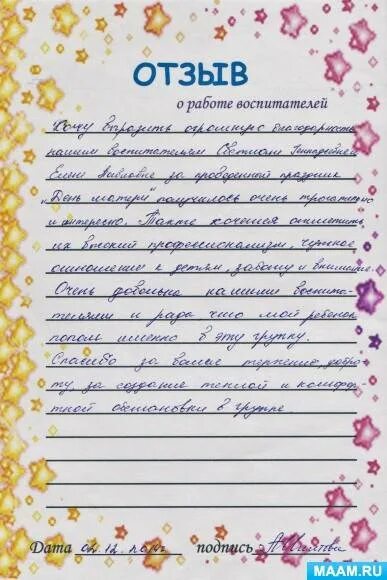 ОТЗЫВ
о работе воспитателей
Хочу выразить огромную благодарность
нашим воспитателям Светлане Геннадьевне
Елене Павловне за проведенный праздник
"День матери" получилось очень трогательно
и интересно. Также хочется отметить
их высокий профессионализм, чуткое
отношение к детям, заботу и внимание.
Очень довольна нашими воспита-
телями и рада что мой ребенок
попал именно в эту группу.
Спасибо за ваше терпение, добро-
ту, за создание теплой и комфор-
тной обстановки в группе
Дата 02.12.2014г подпись
MAAM.RU